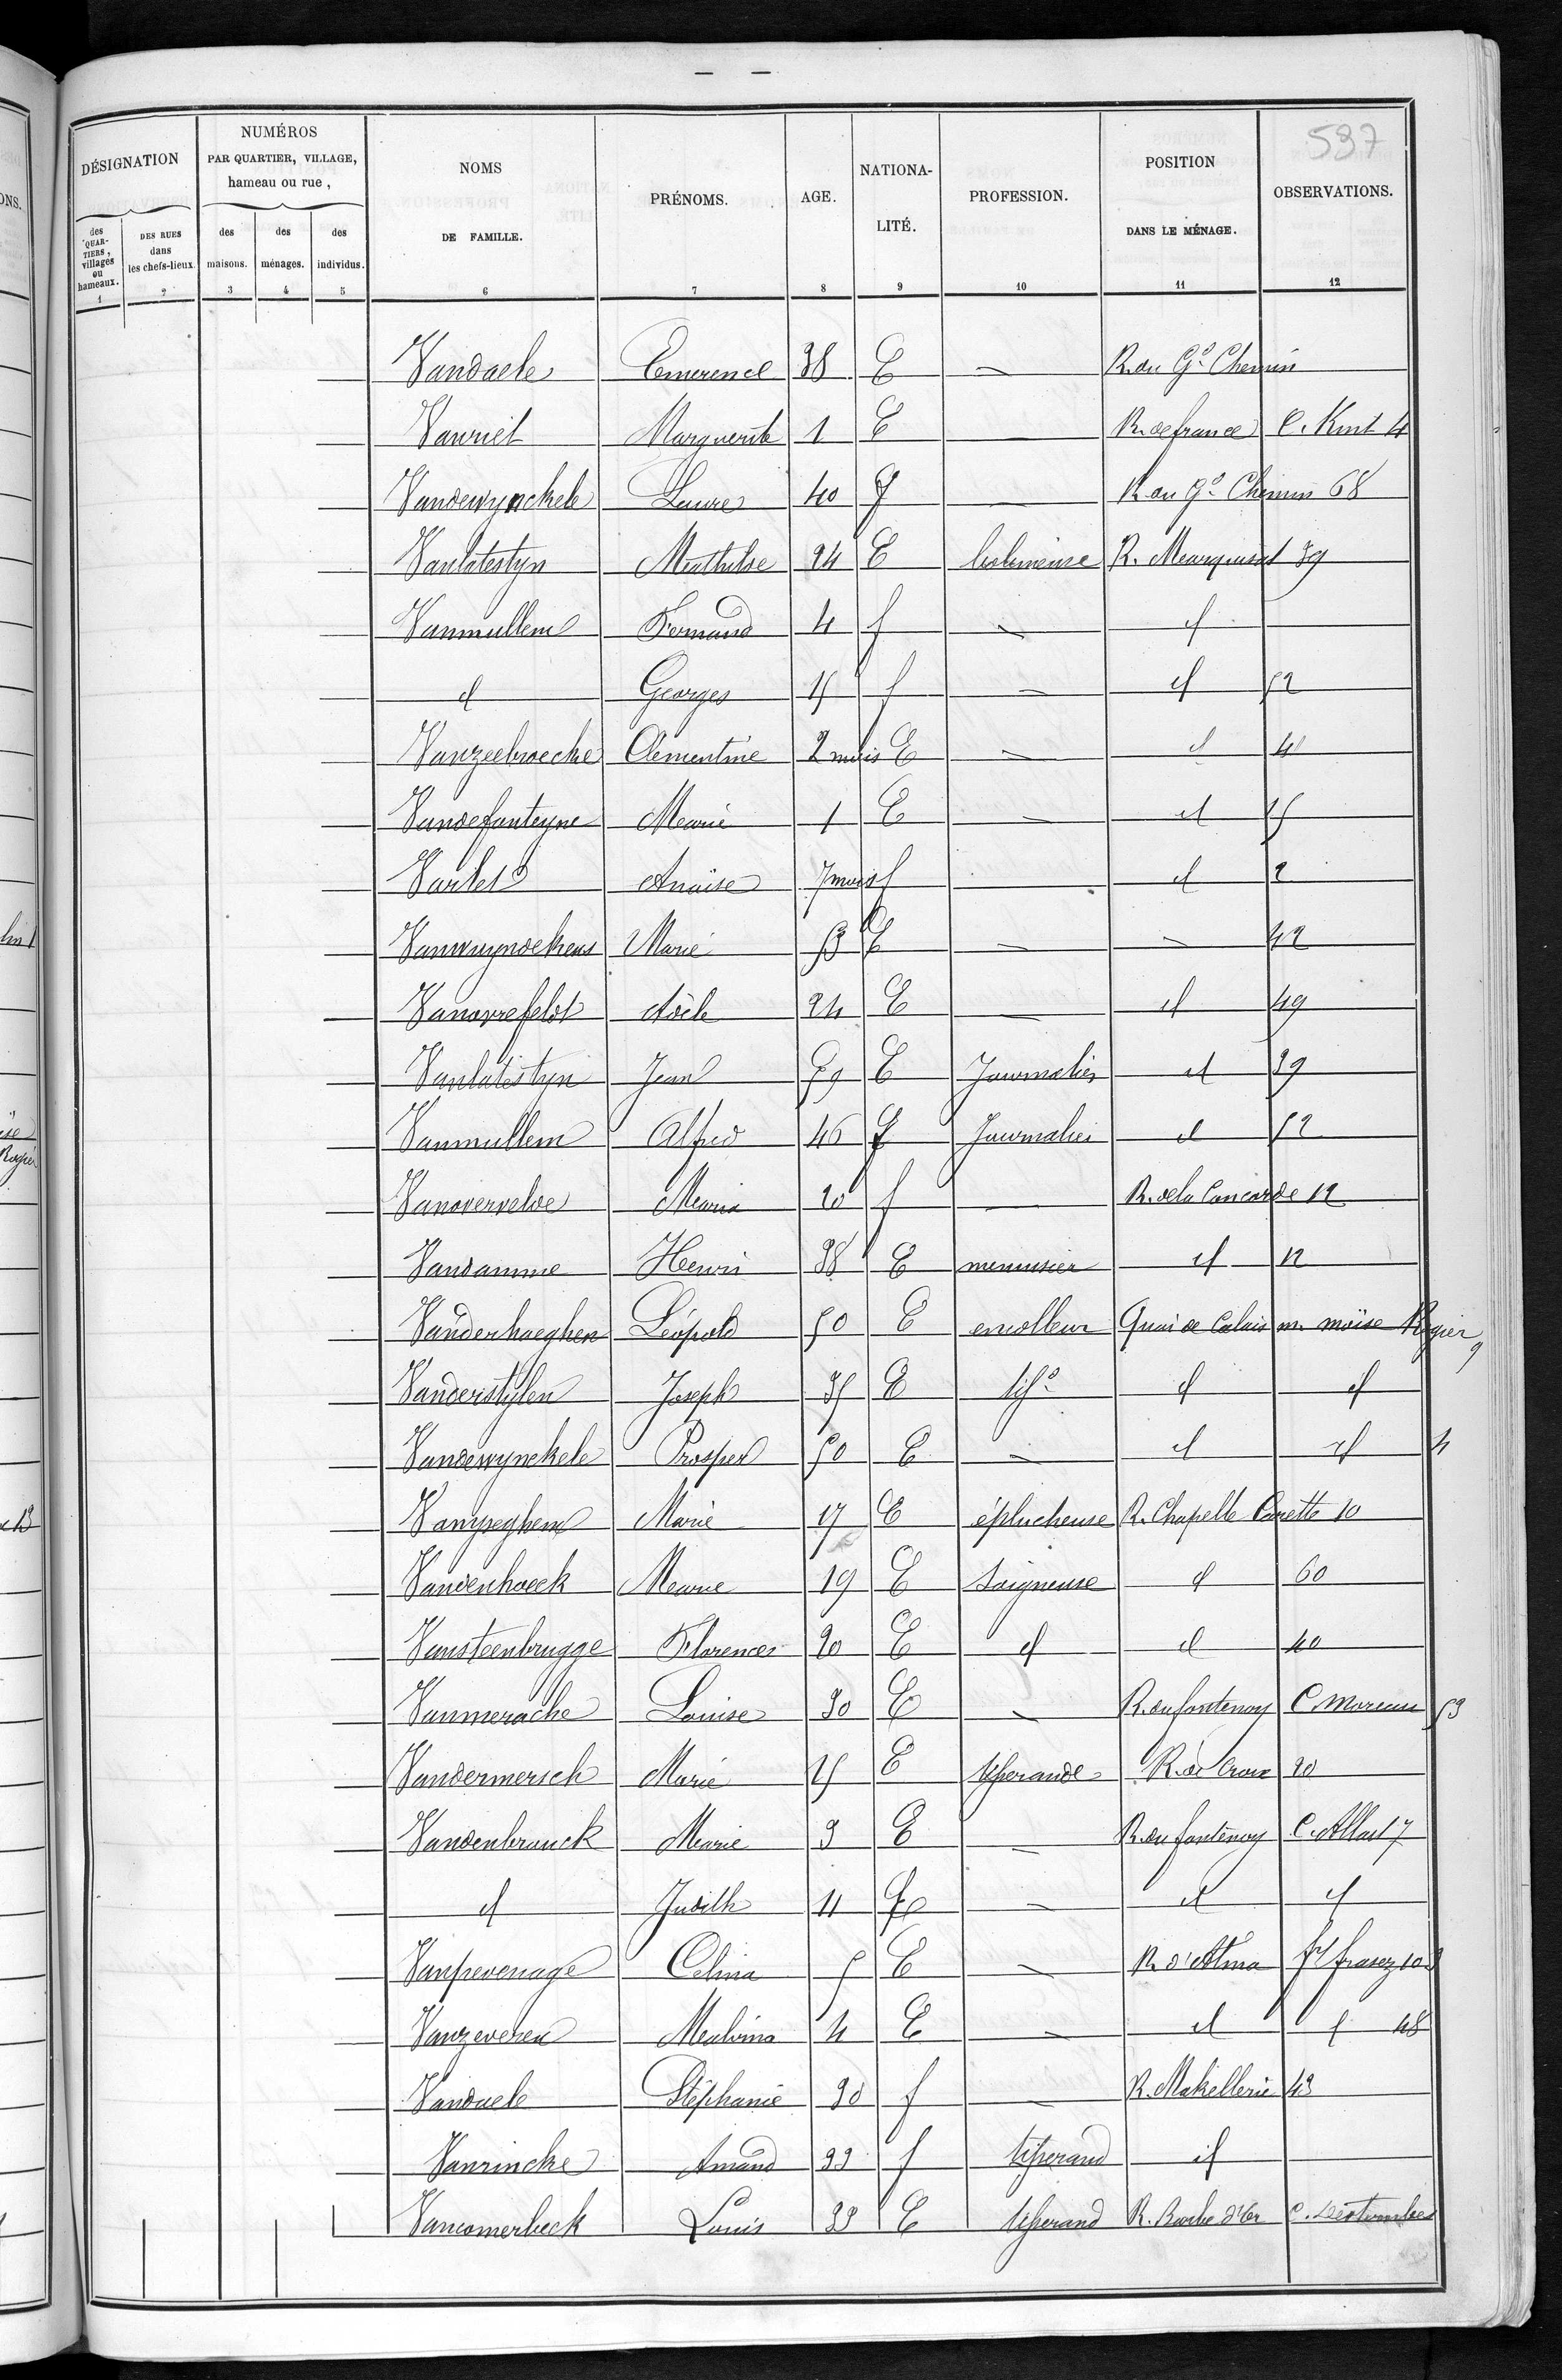 — —
537
DÉSIGNATION
NUMÉROS
PAR QUARTIER, VILLAGE,
hameau ou rue,
NOMS
DE FAMILLE.
PRÉNOMS.
AGE.
NATIONA-
LITÉ.
PROFESSION.
POSITION
DANS LE MÉNAGE.
OBSERVATIONS.
des QUAR-TIERS, villages ou hameaux.
DES RUES dans les chefs-lieux.
des maisons.
des ménages.
des individus.
1 2 3 4 5 6 7 8 9 10 11 12
Vandaele Emerence 38 E — R. du Gd Chemin
Vanriet Marguerite 1 E — R. de france C. Kint 4
Vandewynckele Laure 40 f — R. du Gd Chemin 68
Vanlatestyn Mathilde 24 E R. Meurquisat 39
Vanmullem Fernand 4 f — d
d Georges 15 f — d 52
Vanzeebroecke Clementine 2 mois E — d 40
Vandefonteyne Marie 1 E — d 15
Varlet Anaïse 7 mois f d 2
Marie 53 E — — 42
Adèle 24 E — d 49
Vanlatestyn Jean 59 E Journalier d 39
Vanmullem Alfred 46 f Journalier d 52
Vanovervelde Maria 20 f — R. de la Concorde 12
Vandamme Henri 38 E menuisier d 12
Vanderhaeghen Léopold 50 E encolleur Quai de Calais m. moïse Rogier 9
Vanderstylen Joseph 35 E tisd d d
Vandewynckele Prosper 50 E — d d 4
Vanyseghem Marie 17 E éplucheuse R. Chapelle Carette 10
Vandenhoeck Marie 19 E Soigneuse d 60
Vansteenbrugge Florence 20 E d d 40
Vanmerache Louise 30 E — R. du fontenoy C. Moreau 53
Vandermersch Marie 25 E tisserande R. de Croix 20
Vandenbrouck Marie 9 E — R. du fontenoy C. Allart 7
d Judith 11 f — d d
Vanpevenage Celina 5 E — R. d'Alma ft frasez 103
Vanzeveren Malvina 4 E — d d 48
Vandaele Stéphanie 30 f — R. Makellerie 43
Vanrincke Amand 33 f tisserand d
Vancomerbeck Louis 33 E tisserand R. Barbe d'Or C. Destombes